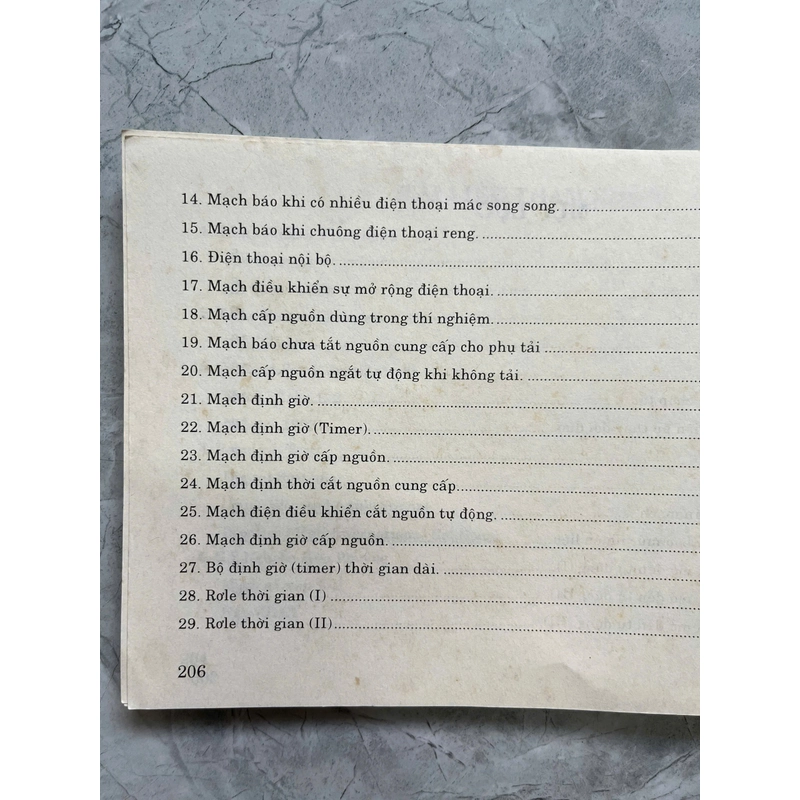 14. Mạch báo khi có nhiều điện thoại mác song song.
15. Mạch báo khi chuông điện thoại reng.
16. Điện thoại nội bộ.
17. Mạch điều khiển sự mở rộng điện thoại.
18. Mạch cấp nguồn dùng trong thí nghiệm.
19. Mạch báo chưa tắt nguồn cung cấp cho phụ tải
20. Mạch cấp nguồn ngắt tự động khi không tải.
21. Mạch định giờ.
22. Mạch định giờ (Timer).
23. Mạch định giờ cấp nguồn.
24. Mạch định thời cắt nguồn cung cấp.
25. Mạch điện điều khiển cắt nguồn tự động.
26. Mạch định giờ cấp nguồn.
27. Bộ định giờ (timer) thời gian dài.
28. Rơle thời gian (I)
29. Rơle thời gian (II)
206